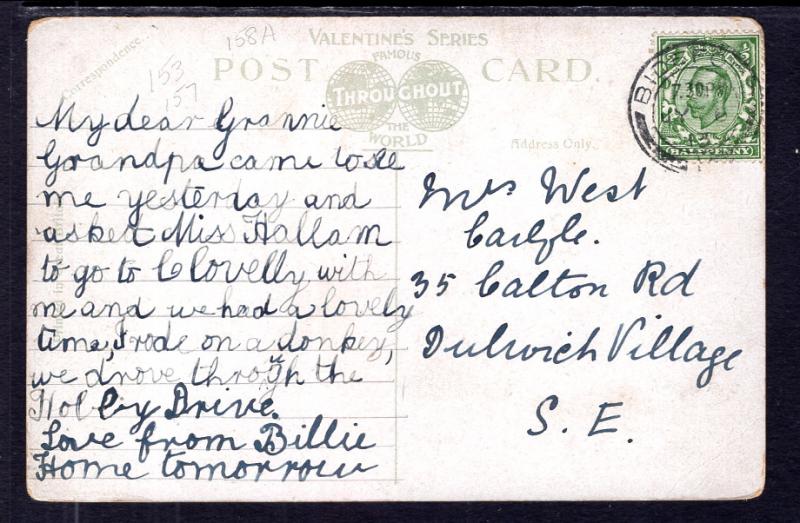 Correspondence.
158A
153
157
VALENTINE'S SERIES
POST CARD.
FAMOUS
THROUGHOUT
THE
WORLD
Address Only.
HALFPENNY
7.30PM
My dear Grannie
Grandpa came to see
me yesterday and
asked Miss Hallam
to go to Clovelly with
me and we had a lovely
time, I rode on a donkey,
we drove through the
Hobby Drive.
Love from Billie
Home tomorrow
Mrs West
Carlyle.
35 Calton Rd
Dulwich Village
S. E.